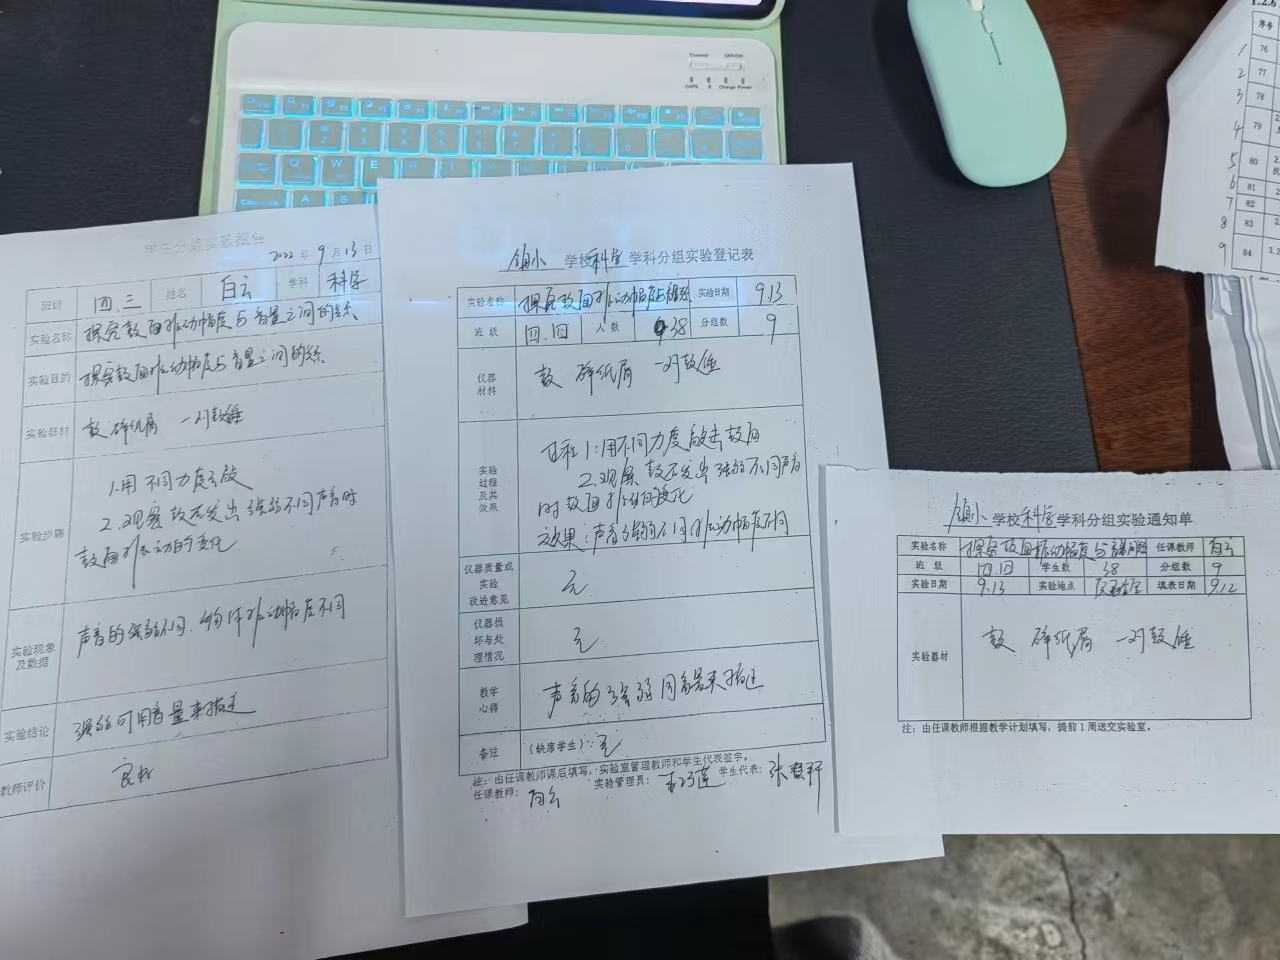 学生分组实验报告
2022 年 9 月 13 日
班级 四.三 姓名 白云 学科 科学
实验名称 探究鼓面振动幅度与音量之间的关系
实验目的 探究鼓面振动幅度与音量之间的关系
实验器材 鼓 碎纸屑 一对鼓锤
实验步骤
1.用不同力度敲
2.观察鼓在发出强弱不同声音时
鼓面振动的变化
实验现象及数据 声音的强弱不同.物体振动幅度不同
实验结论 强弱可用音量来描述
教师评价 良好
镇小 学校 科学 学科分组实验登记表
实验名称 探究鼓面振动幅度与 实验日期 9.13
班级 四.四 人数 38 分组数 9
仪器材料 鼓 碎纸屑 一对鼓锤
实验过程及其效果
过程 1:用不同力度敲击鼓面
2.观察鼓在发出强弱不同声音
时鼓面振动的变化
效果:声音强弱不同振动幅度不同
仪器质量或实验改进意见 无
仪器损坏与处理情况 无
教学心得 声音的强弱用音量来描述
备注 (缺席学生):无
注:由任课教师课后填写,实验室管理教师和学生代表签字。
任课教师: 白云 实验管理员: 学生代表: 张
镇小 学校 科学 学科分组实验通知单
实验名称 探究鼓面振动幅度与 任课教师 白云
班级 四.四 学生数 38 分组数 9
实验日期 9.13 实验地点 实验室 填表日期 9.12
实验器材 鼓 碎纸屑 一对鼓锤
注:由任课教师根据教学计划填写,提前1周送交实验室。
序号
1 76
2 77
3 78
4 79
5 80
6 81
7 82
8 83
9 84
Connect OFF/ON
CAPS Charge Power
Q W E
A S